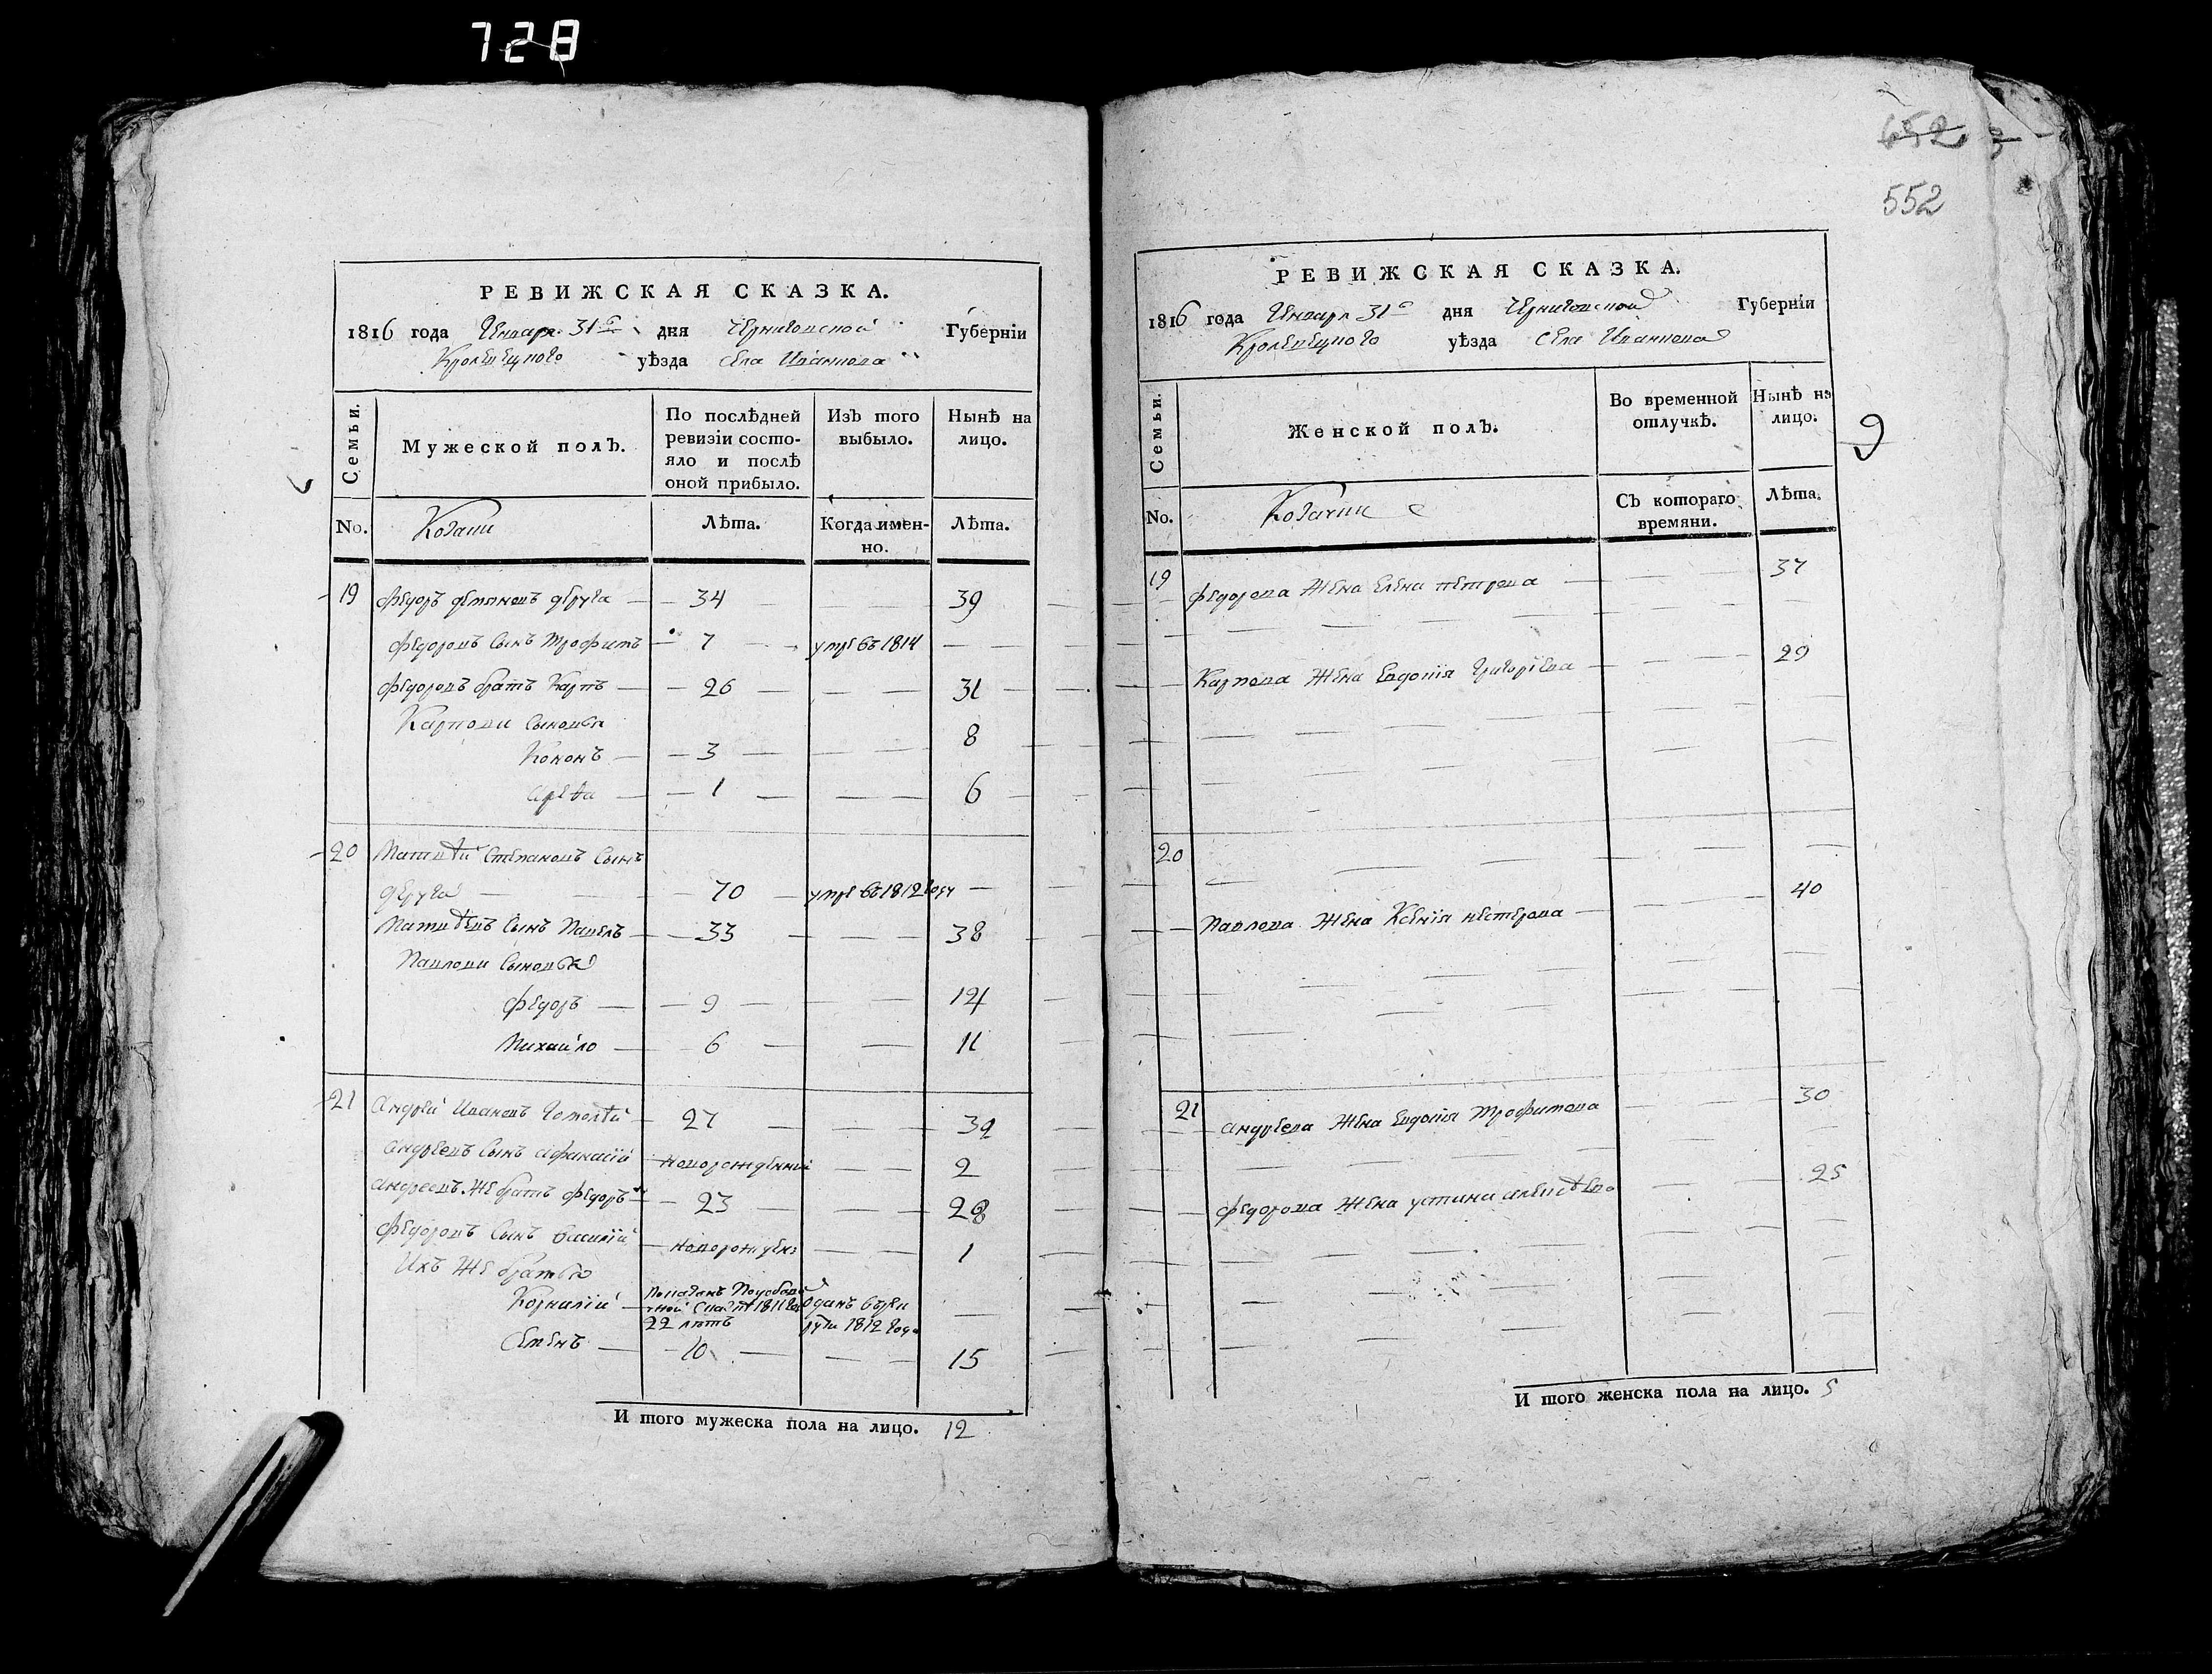 728
РЕВИЖСКАЯ СКАЗКА.
1816 года Января 31го дня Черниговской Губернїи
Кролевецкого уѣзда села Иванкова
Семьи.
Мужеской полъ.
По послѣдней ревизїи состо-
яло и послѣ
оной прибыло.
Изъ того
выбыло.
Нынѣ на
лицо.
No.
Козаки
Лѣта.
Когда имен-
но.
Лѣта.
19 Федоръ Демяновъ Деруга — 34 — 39
Федоровъ сынъ Трофимъ — 7 — умре въ 1814
Федоровъ братъ Карпъ — 26 — 31
Карпови сыновья
Кононъ — 3 — 8
Арефа — 1 — 6
20 Матвѣй Степановъ сынъ
Деруга — 70 — умре въ 1812 году —
Матвѣевъ сынъ Павелъ — 33 — 38
Павлови сыновья
Федоръ — 9 — 14
Михайло — 6 — 11
21 Андрей Ивановъ — 27 — 32
Андреевъ сынъ Афанасїй — новорожденний — 2
Андреевъ же братъ Федоръ — 23 — 28
Федоровъ сынъ Василїй — новорожден — 1
Ихъ же братья
Корнилїй — 22 лѣтъ отданъ въ рекруты 1812 года —
Семенъ — 10 — 15
И того мужеска пола на лицо. 12
652
552
РЕВИЖСКАЯ СКАЗКА.
1816 года Января 31го дня Черниговской Губернїи
Кролевецкого уѣзда села Иванкова
9
Семьи.
Женской полъ.
Во временной
отлучкѣ.
Нынѣ на
лицо.
No.
Козачки
Съ котораго
времяни.
Лѣта.
19 Федорова жена Елена Петрова — 37
Карпова жена Евдокїя Григорїева — 29
20
Павлова жена Ксенїя Нестерова — 40
21 Андреева жена Евдокїя Трофимова — 30
Федорова жена Устина Алексѣева — 25
И того женска пола на лицо. 5